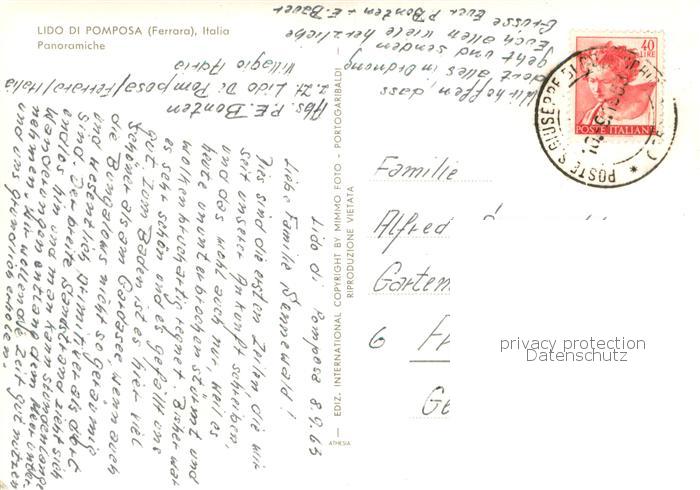 LIDO DI POMPOSA (Ferrara), Italia
Panoramiche
Lido di Pomposa 8.9.65
Liebe Familie Dannewald!
Dies sind die ersten Zeilen, die wir
seit unserer Ankunft schreiben,
und das wohl auch nur, weil es
heute ununterbrochen stürmt und
wolkenbruchartig regnet. Bisher war
es sehr schön und es gefällt uns
gut. Zum Baden ist es hier viel
schöner als am Gardasee, wenn auch
die Bungalows nicht so geräumig
und wesentlich primitiver als dort
sind. Der breite Sandstrand zieht sich
endlos hin und man kann stundenlange
Wanderungen entlang dem Meer unter-
nehmen. Wir wollen die Zeit gut nutzen
und uns gründlich erholen.
Wir hoffen, dass
dort alles in Ordnung
geht und senden
Euch allen viele herzliche
Grüsse Eure P. Bonten + E. Bauer
Abs. P.E. Bonten
z. Zt. Lido Di Pomposa/Ferrara/Italia
Villagio Adria
EDIZ. INTERNATIONAL COPYRIGHT BY MIMMO FOTO - PORTOGARIBALDI
RIPRODUZIONE VIETATA
ATHESIA
40
LIRE
POSTE ITALIANE
POSTE S. GIUSEPPE DI
Familie
Alfred
Garten
6 F
Ge
privacy protection
Datenschutz